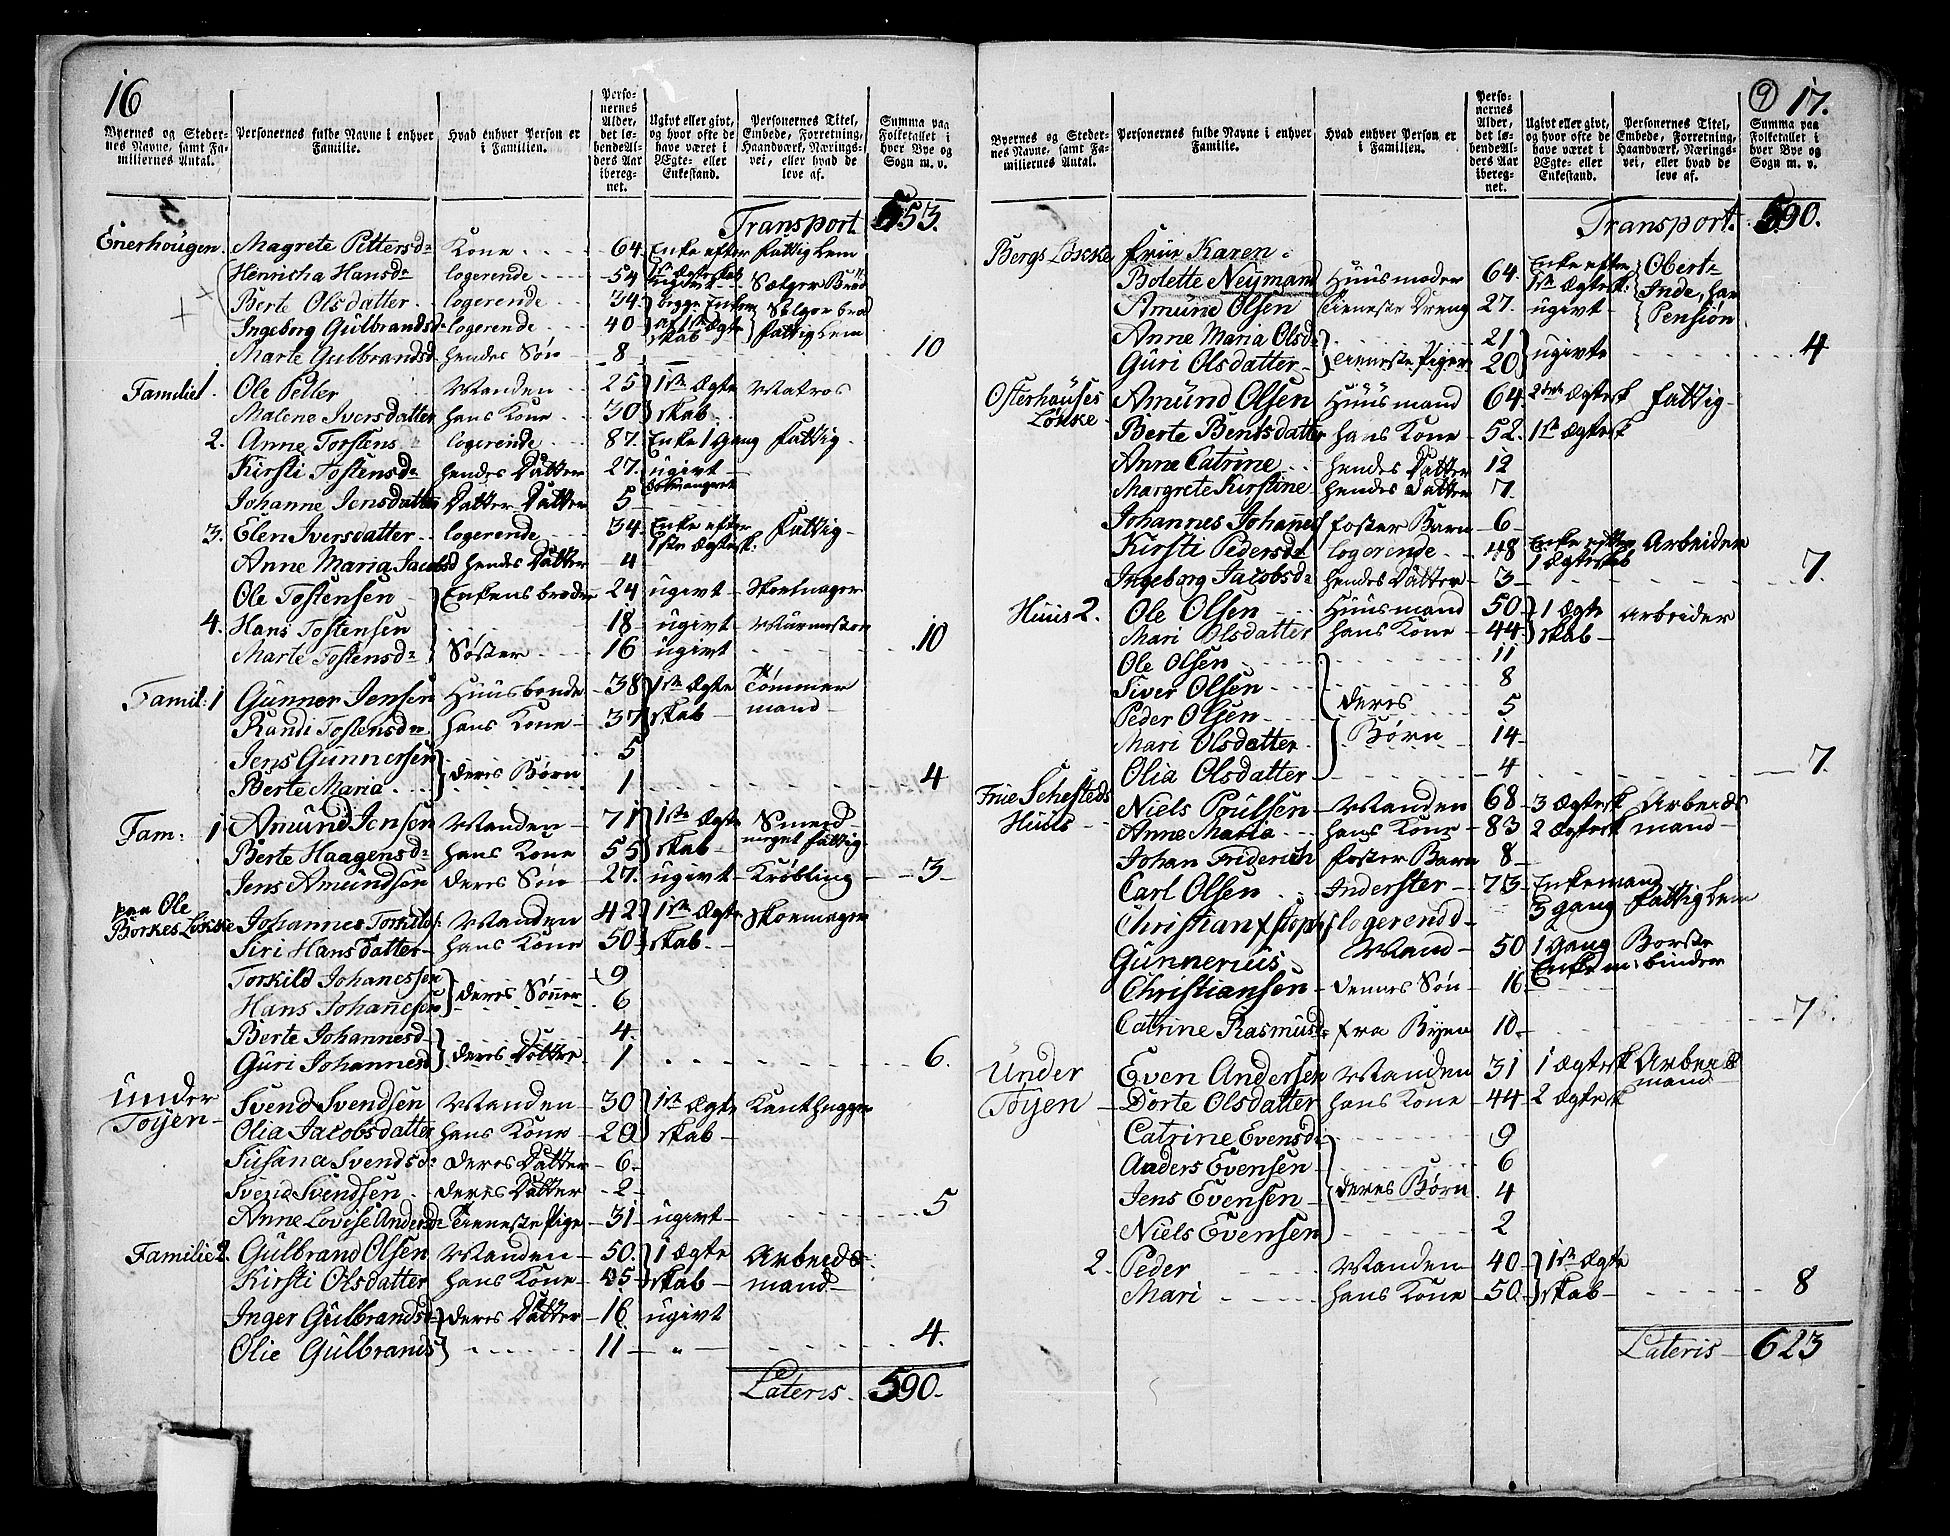 16
Byernes og Steder-
nes Navne, samt Fa-
miliernes Antal.
Personernes fulde Navne i enhver
Familie.
Hvad enhver Person er
i Familien.
Perso-
nernes
Alder,
det lø-
bende Al-
ders Aar
iberег-
net.
Ugivt eller givt,
og hvor ofte de
have været i
Ægte- eller
Enkestand.
Personernes Titel,
Embede, Forretning,
Haandværk, Nærings-
vei, eller hvad de
leve af.
Summa paa
Folketallet i
hver Bye og
Sogn m. v.
Transport 553.
Enerhougen Magrete Pettersd: Kone 64 Enke efter fattig Lem
Henricha Hansdr logerende 54 ugivt Sælger Brød
Berte Olsdatter logerende 34 begge Enker Sælger brød
Ingeborg Gulbrandsd: logerende 40 af 1ste Ægteskab fattig Lem
Marte Gulbrandsd hendes Søn 8 10
Familie 1. Ole Peller Manden 25 1ste Ægte Matros
Malene Iversdatter hans Kone 30 skab
2. Anne Torstens logerende 87. Enke 1 Gang fattig
Kirsti Tostensdr hendes Datter 27. ugivt
Johanne Jensdatter Datter Datter 5
3. Elen Iversdatter logerende 34 Enke efter 1ste Ægtesk: fattig
Anne Maria Jacobsd hendes Datter 4
Ole Tostensen Enkens broder 24 ugivt Skoemager
4. Hans Tostensen 18 ugivt Muurmester
Marte Tostensdr Søster 16 ugivt 10
Famil: 1 Gunner Jensen Huusbonde 38 1ste Ægte Tømmer
Randi Tostensdr hans Kone 37 skab mand
Jens Gunnersen 5
Berte Maria deres Børn 1 4
Fam: 1 Amund Jensen Manden 71 1ste Ægte Smed
Berte Haagensd: hans Kone 55 skab meget fattig
Jens Amundsen deres Søn 27. ugivt Krøbling 3
paa Ole
Borkes Løkke Johannes Torkilds: Manden 42 1ste Ægte Skoemager
Siri Hansdatter hans Kone 50 skab
Torkild Johanessen 9
Hans Johanesen deres Sønner 6
Berte Johannesd 4
Guri Johannesd deres Døttre 1 6.
Under
Toÿen Svend Svendsen Manden 30 1ste Ægte Kanthugger
Olia Jacobsdatter hans Kone 29 skab
Susana Svendsd: deres Datter 6
Svend Svendsen deres Datter 2
Anne Lovise Andersd: Tieneste Pige 31 ugivt 5
Familie 2. Gulbrand Olsen Manden 50. 1 Ægte Arbeids
Kirsti Olsdatter hans Kone 45 skab mand
Inger Gulbrandsd: deres Døtter 16 ugivt
Olie Gulbrands 11 4.
Lateris 590.
9 17.
Byernes og Steder-
nes Navne, samt Fa-
miliernes Antal.
Personernes fulde Navne i enhver
Familie.
Hvad enhver Person er
i Familien.
Perso-
nernes
Alder,
det lø-
bende Al-
ders Aar
ibereg-
net.
Ugivt eller givt,
og hvor ofte de
have været i
Ægte- eller
Enkestand.
Personernes Titel,
Embede, Forretning,
Haandværk, Nærings-
vei, eller hvad de
leve af.
Summa paa
Folketallet i
hver Bye og
Sogn m. v.
Transport. 590.
Bergs Løkke Frue Karen
Bolette Neymann Huusmoder 64 Enke efter 1ste Ægtesk:
Amund Olsen Tieneste Dreng 27. ugivt Pension
Anne Maria Olsd: 21
Guri Olsdatter Tieneste Piger 20 ugivte 4
Osterhauses
Løkke Amund Olsen Huusmand 64 2den Ægtesk fattig
Berte Bentsdatter hans Kone 52. 1ste Ægtesk
Anne Catrine hendes Datter 12
Margrete Kirstine hendes Datter 7.
Johannes Johannes foster Barn 6
Kirsti Pedersdr logerende 48 Enke efter 1 Ægteskab Arbeider
Ingeborg Jacobsdr hendes Datter 3 7.
Huus 2. Ole Olsen Huusmand 50 1 Ægte arbeider
Mari Olsdatter hans Kone 44 skab
Ole Olsen 11
Siver Olsen 8
Peder Olsen deres 5
Mari Olsdatter Børn 14
Olia Olsdatter 4 7.
Frue Schesteds
Huus Niels Poulsen Manden 68 3 Ægtesk Arbeids
Anne Maria hans Kone 83 2 Ægtesk mand
Johan Friderich foster Barn 8
Carl Olsen Inderster 73 Enkemand 3 gang fattig Lem
Christian logerende
Gunnerius Mand 50 1 Gang Enkem: Børstebinder
Christiansen dennes Søn 16
Catrine Rasmusd: fra Byen 10 7
Under
Toÿen Even Andersen Manden 31 1 Ægtesk Arbeids
mand
Dorte Olsdatter hans Kone 44 2 Ægtesk
Catrine Evensd: 9
Anders Evensen 6
Jens Evensen deres Børn 4
Niels Evensen 2
2. Peder Manden 40 1ste Ægte
Mari hans Kone 50 skab 8
Lateris 623